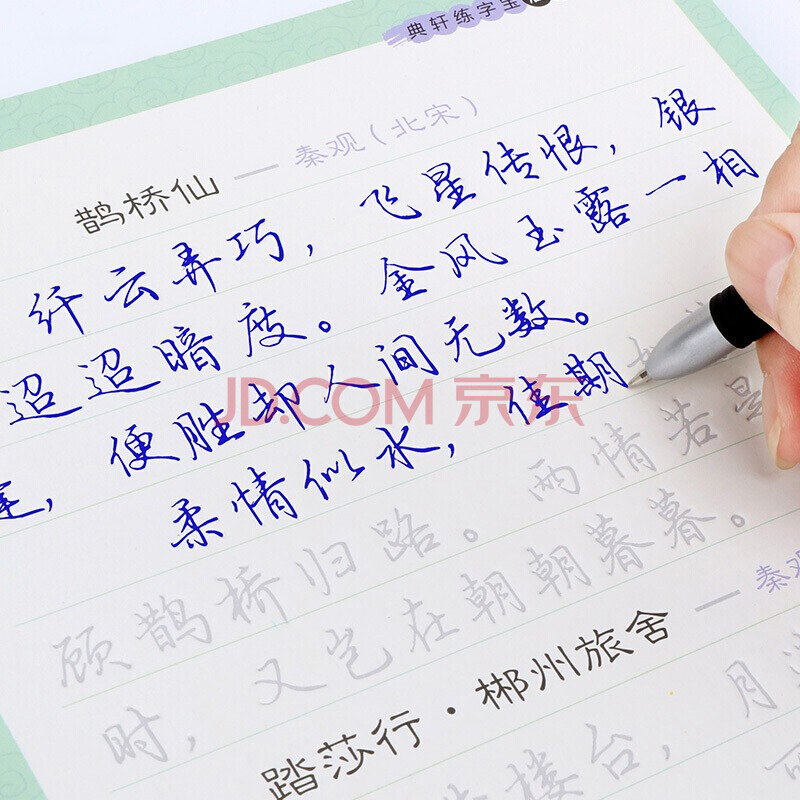 典轩练字宝
鹊桥仙 — 秦观（北宋）
纤云弄巧，飞星传恨，银
迢迢暗度。金风玉露一相
，便胜却人间无数。
柔情似水，佳期
顾鹊桥归路。两情若是
时，又岂在朝朝暮暮。
踏莎行·郴州旅舍 — 秦观
楼台，月
JD.COM 京东